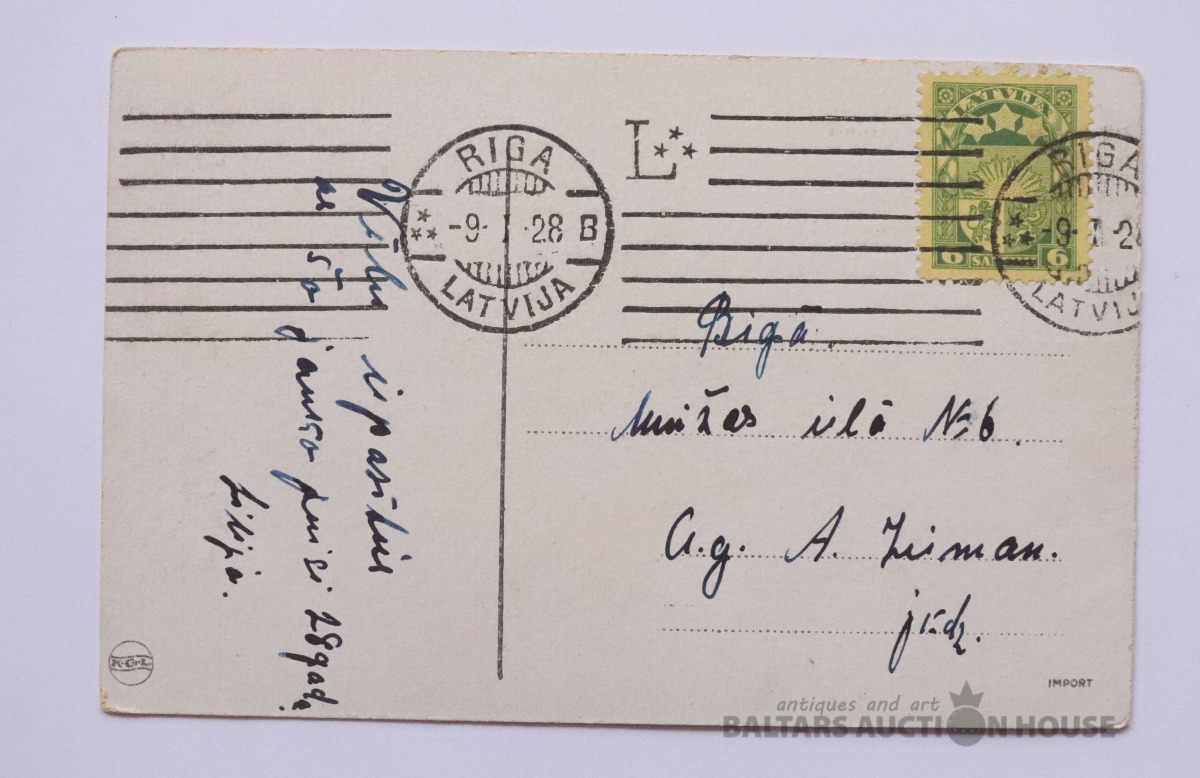 RIGA
-9- I -28 B
LATVIJA
L
LATVIJA
6 SANT 6
RIGA
-9- I -28
LATVIJ
Vēlu iepasītus
ar šo jauno puisi 28 gadā
Lilija.
Rigā.
Muižas ielā № 6.
A. g. A. Zeiman.
jkdz.
K.Gr.L
IMPORT
antiques and art
BALTARS AUCTION HOUSE